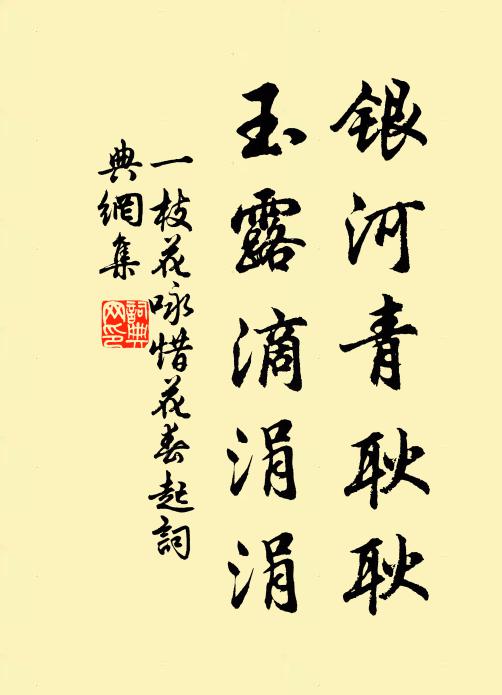 銀河青耿耿
玉露滴涓涓
一枝花咏惜花春起詞
典網集
詞典
网印